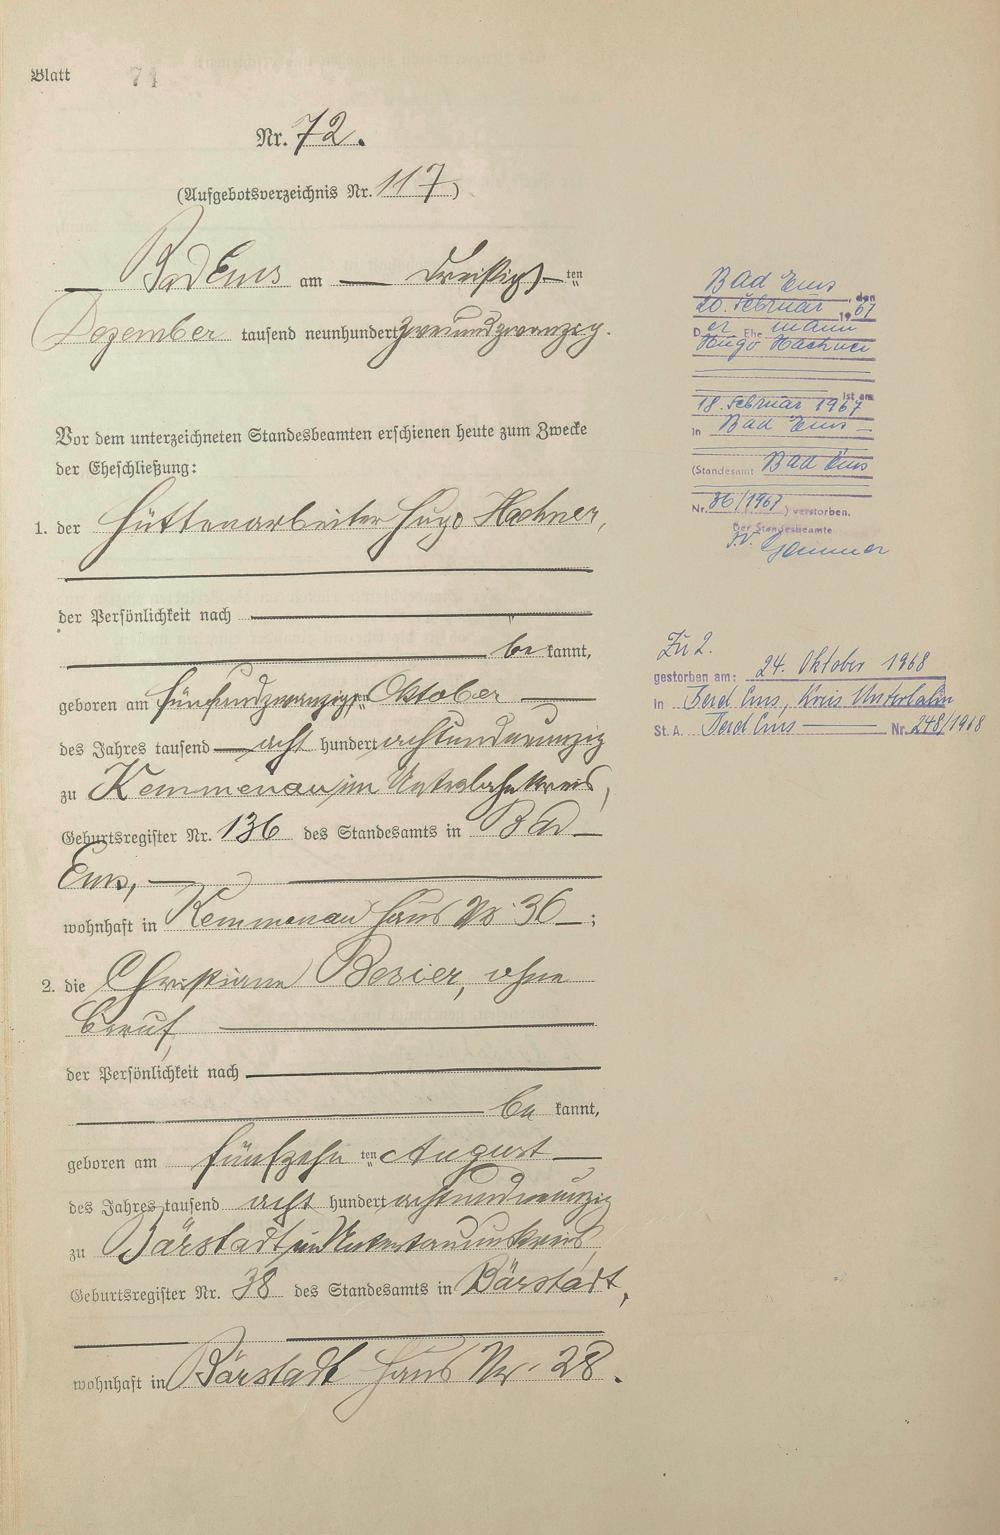 Blatt 71
Nr. 72.
(Aufgebotsverzeichnis Nr. 117)
Bad Ems am dreißigsten
Dezember tausend neunhundert zweiundzwanzig.
Vor dem unterzeichneten Standesbeamten erschienen heute zum Zwecke
der Eheschließung:
1. der Hüttenarbeiter Hugo Hachner,
der Persönlichkeit nach
be kannt,
geboren am fünfundzwanzigsten Oktober
des Jahres tausend acht hundert achtundneunzig
zu Kemmenau im Unterlahnkreis,
Geburtsregister Nr. 136 des Standesamts in Bad
Ems,
wohnhaft in Kemmenau Haus No 36;
2. die Christiane Besier, ohne
Beruf,
der Persönlichkeit nach
be kannt,
geboren am fünfzehn ten August
des Jahres tausend acht hundert achtundneunzig
zu Bärstadt im Untertaunuskreis
Geburtsregister Nr. 38 des Standesamts in Bärstadt,
wohnhaft in Bärstadt Haus Nr. 28.
Bad Ems, den
20. Februar 1967
D er Ehe mann
Hugo Hachner
ist am
18. Februar 1967
in Bad Ems
(Standesamt Bad Ems
Nr. 36/1967) verstorben.
Der Standesbeamte
I.V.
Zu 2.
gestorben am: 24. Oktober 1968
in Bad Ems, Kreis Unterlahn
St. A. Bad Ems Nr. 248/1968